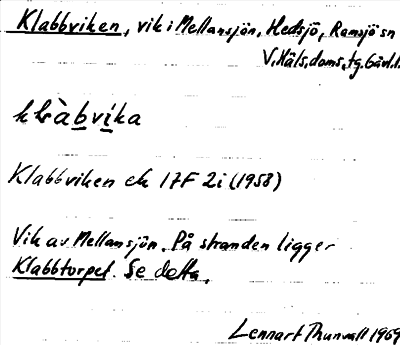 Klabbviken, vik i Mellansjön, Hedsjö, Ramsjö sn
V. Häls. doms. tg. Gävl. l.
klàbvika
Klabbviken ek 17F 2i (1958)
Vik av Mellansjön. På stranden ligger
Klabbtorpet. Se detta.
Lennart Thunvall 1969